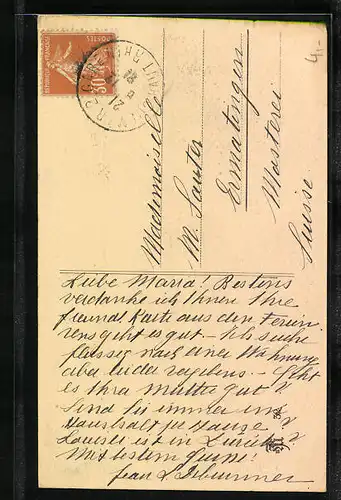 4.-
30
POSTES
Mademoiselle
M. Sauter
Ermatingen
Mosterei
Suisse
Liebe Maria! Bestens
verdanke ich Ihnen Ihre
freundl Karte aus den Ferien
uns geht es gut. – Ich suche
fleissig nach einer Wohnung
aber leider vergebens. – Geht
es Ihrer Mutter gut?
Sind Sie immer im
Haushalt zu Hause
Louisli ist in Zürich
Mit besten Grüsse!
frau